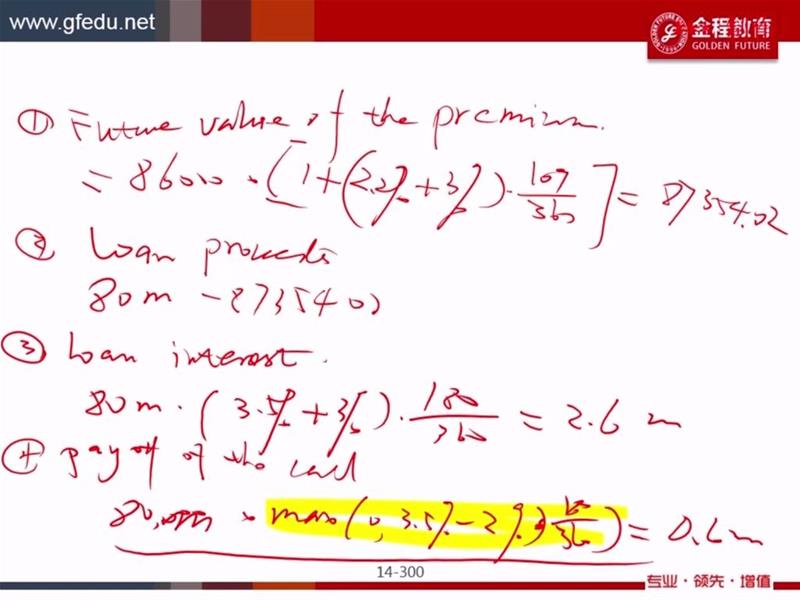 www.gfedu.net
金程教育
GOLDEN FUTURE
① Future value of the premium.
= 86000 · [1+(2.2%+3%)·109/360] = 87354.02
② Loan proceeds
80m - 8735402
③ Loan interest.
80m · (3.5%+3%) · 180/360 = 2.6 m
④ pay off of the call
max(0, 3.5%-2%) = 0.6m
14-300
专业·领先·增值